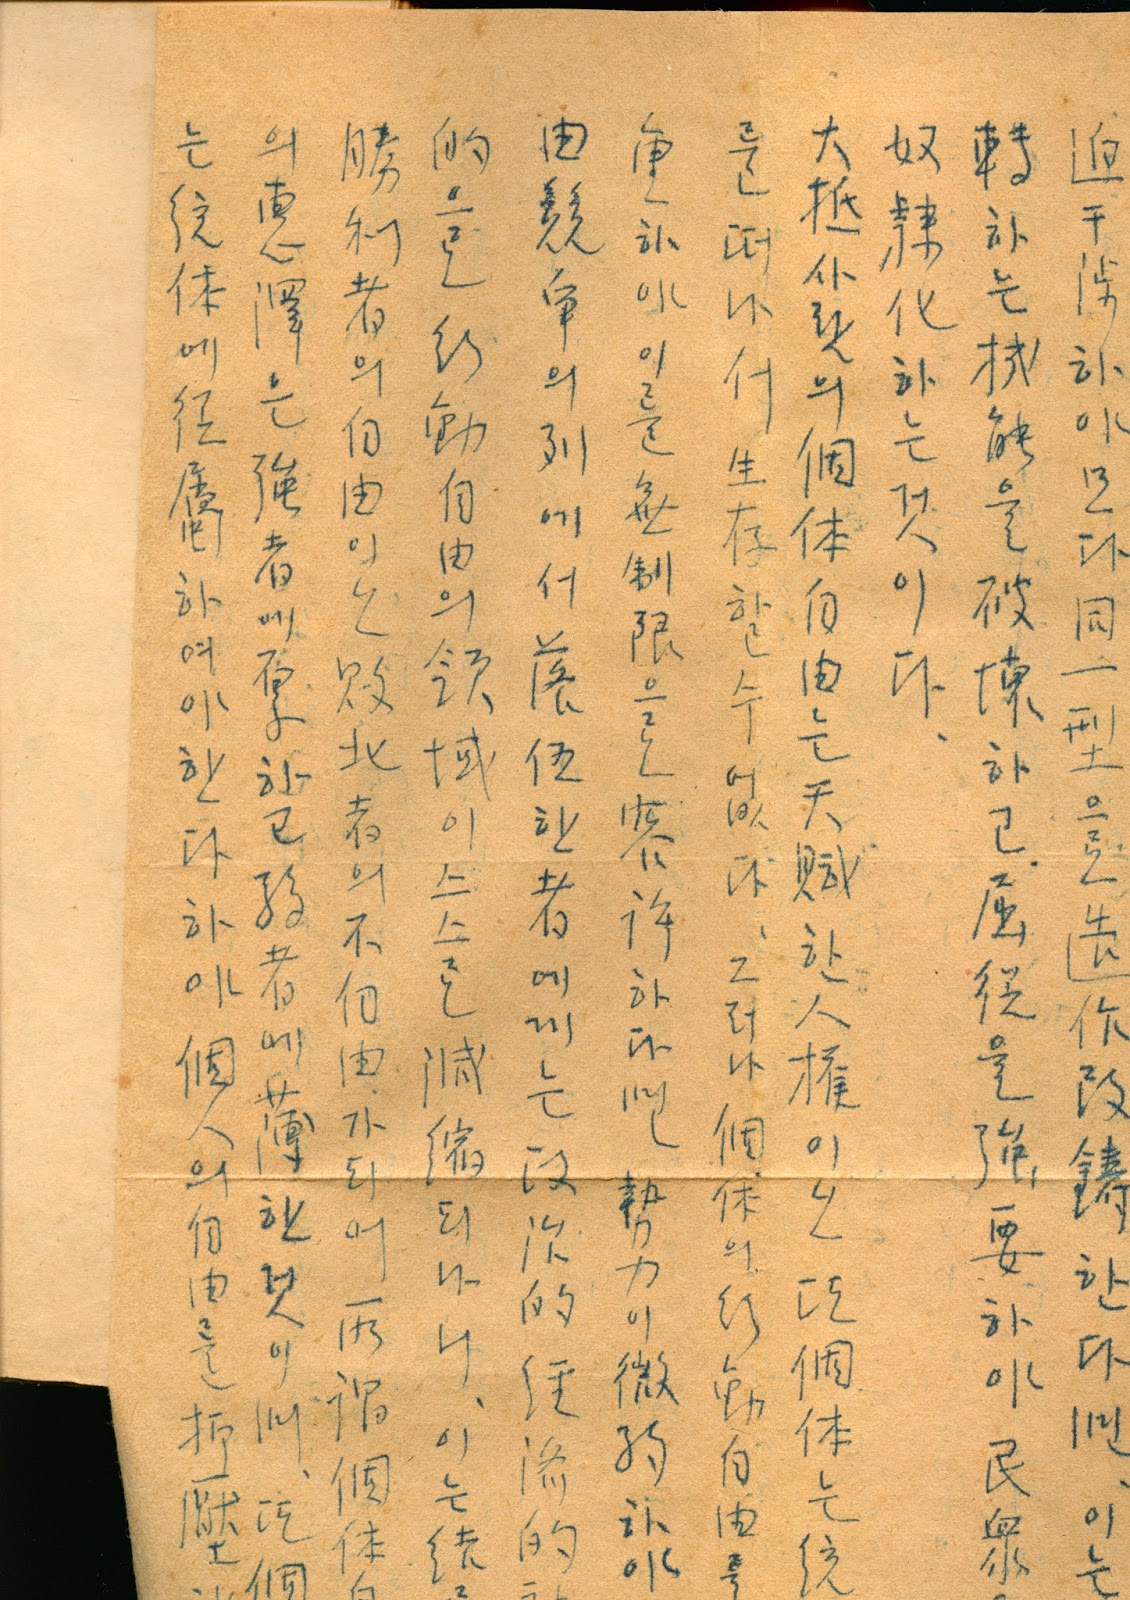 迫干涉하야모다同一型으로造作改鑄한다면、이는
轉하는機能을破壞하고、屈從을强要하야民衆
奴隸化하는것이다、
大抵사람의個体自由는天賦한人權이오또個体는統
를떠나서生存할수없다、그러나個体의行動自由를
하야이를無制限으로容許하다면勢力이微弱하야
由競爭의列에서落伍한者에게는政治的經済的
的으로行動自由의領域이스스로減縮되나니、이는結
勝利者의自由이오敗北者의不自由가되어所謂個体自
의惠澤은强者에厚하고弱者에薄한것이며、또個
는統体에從屬하여야한다하야個人의自由를抑壓하